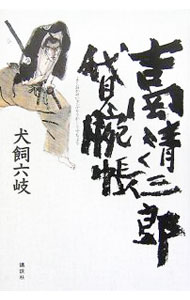 吉岡清三郎
貸腕帳
犬飼六岐
講談社